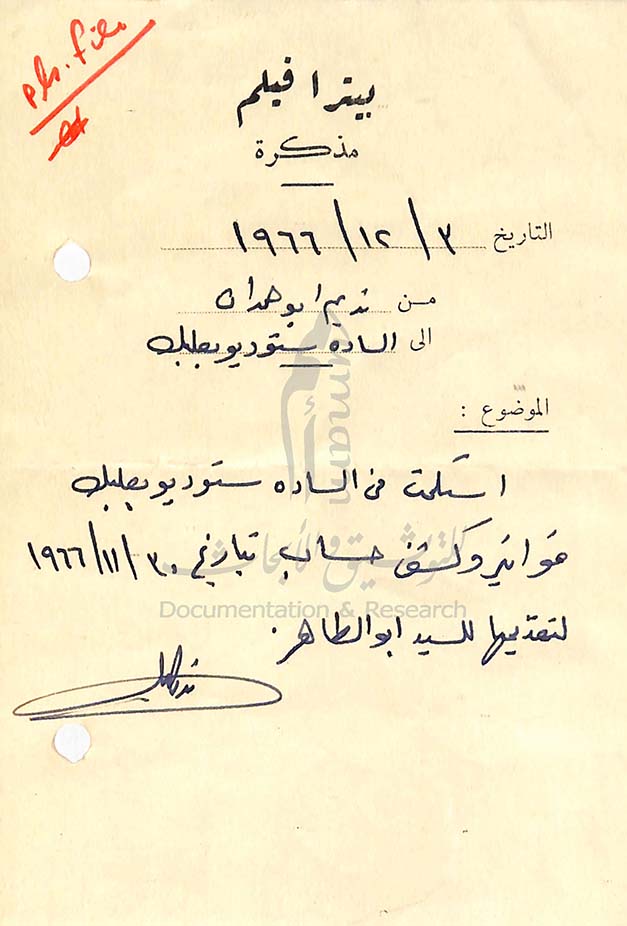 pls. file
بيترا فيلم
مذكرة
التاريخ ٣ / ١٢ / ١٩٦٦
من نديم ابو حمدان
الى الساده ستوديو بعلبك
الموضوع :
استلمت من الساده ستوديو بعلبك
فواتير وكشف حساب بتاريخ ٣٠ / ١١ / ١٩٦٦
لتقديمها للسيد ابو الطاهر .
umam
أمم
للتوثيق والأبحاث
Documentation & Research